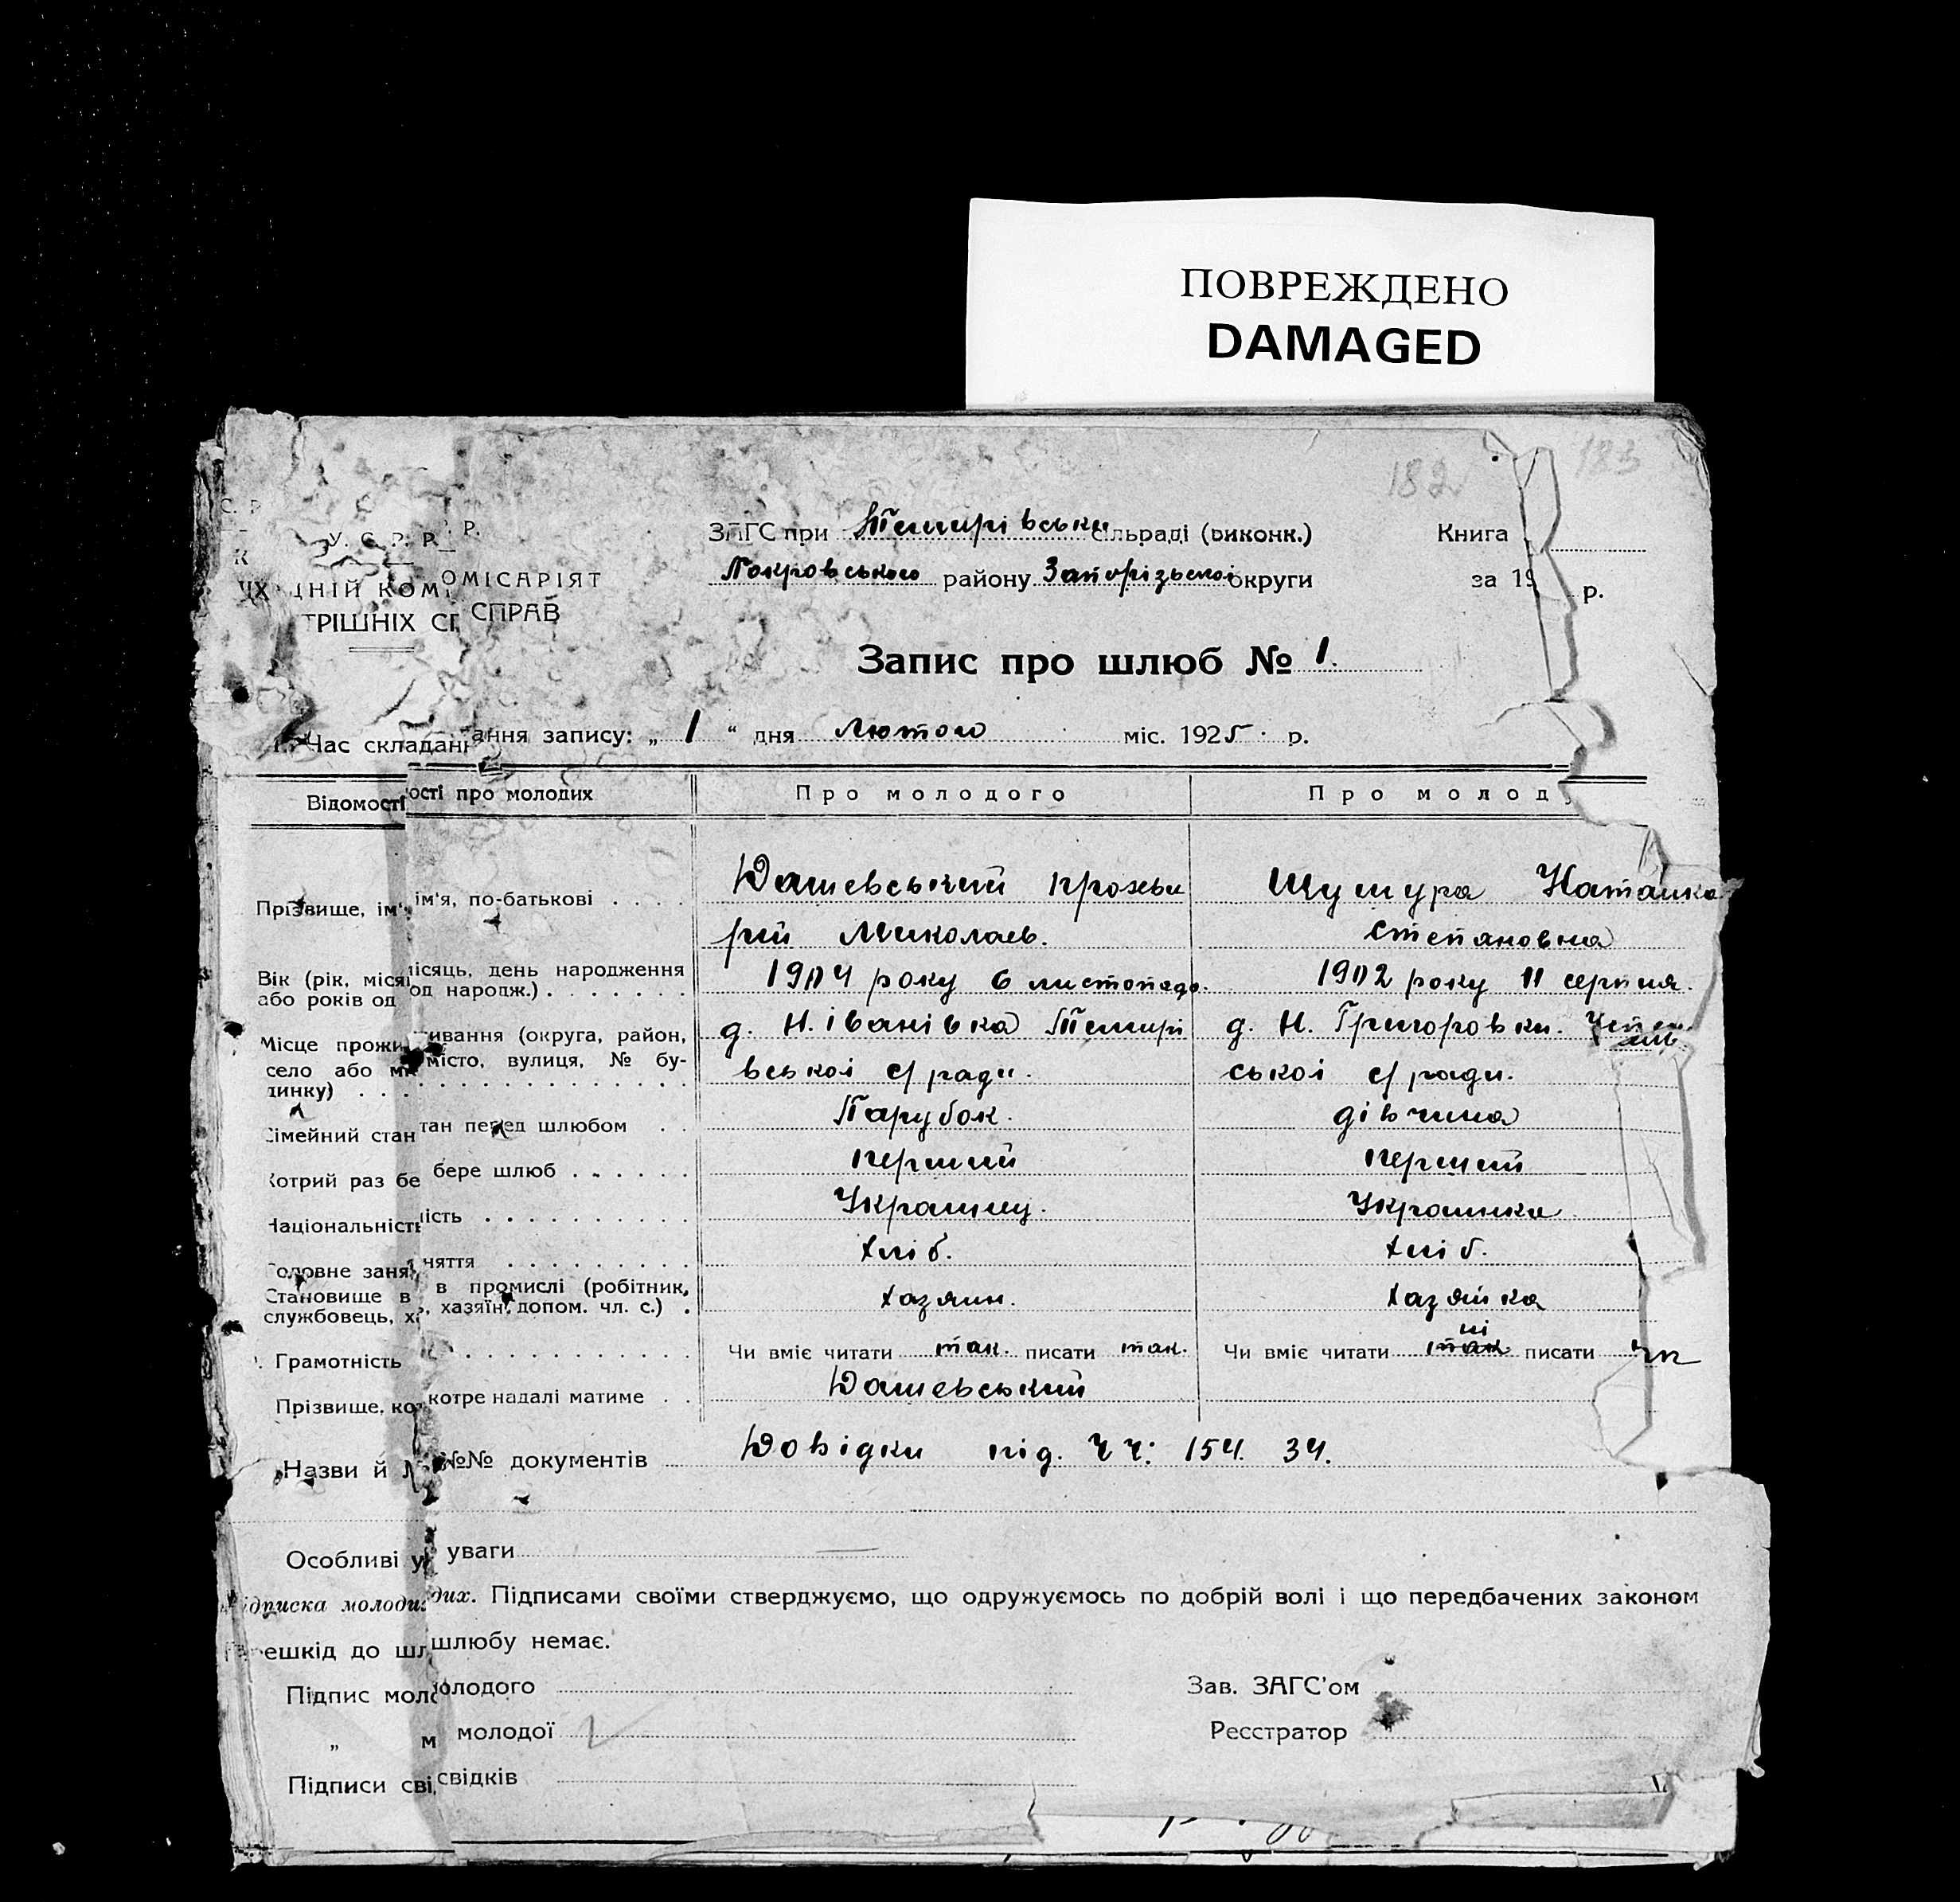 ПОВРЕЖДЕНО
DAMAGED
182
183
У. С. Р. Р.
ОМІСАРІЯТ
ТРІШНІХ СПРАВ
ЗАГС при Темирівськи сільраді (виконк.)
Книга
Покровського району Запорізької округи
за 19 р.
Запис про шлюб № 1.
Час складання запису: „ 1 “ дня лютого міс. 1925 р.
Відомості про молодих
Про молодого
Про молоду
Прізвище, ім'я, по-батькові . . . .
Дашевський
Шушура Наталка
рій Миколаєв.
Степановна
Вік (рік, місяць, день народження
або років од народж.) . . . . . . .
1904 року 6 листопада.
1902 року 11 серпня.
Місце проживання (округа, район,
село або місто, вулиця, № бу-
динку) . . .
д. Н. Іванівка Темирі
вської с/ради.
д. Н. Григоровки.
ської с/ради.
Сімейний стан перед шлюбом . .
Парубок.
дівчина
Котрий раз бере шлюб . . . . . .
перший
перший
Національність . . . . . . . . . .
Українец.
Українка
Головне заняття . . . . . . . . .
хліб.
хліб.
Становище в промислі (робітник,
службовець, хазяїн, допом. чл. с.) .
хазяин.
хазяйка
Грамотність . . . . . . . . . . .
Чи вміє читати так. писати так.
ні
Чи вміє читати так писати
Прізвище, котре надалі матиме . .
Дашевський
Назви й №№ документів
Довідки під. ЧЧ: 154. 34.
Особливі уваги
Підписка молодих. Підписами своїми стверджуємо, що одружуємось по добрій волі і що передбачених законом
перешкід до шлюбу немає.
Підпис молодого
Зав. ЗАГС'ом
„ молодої
Реєстратор
Підписи свідків